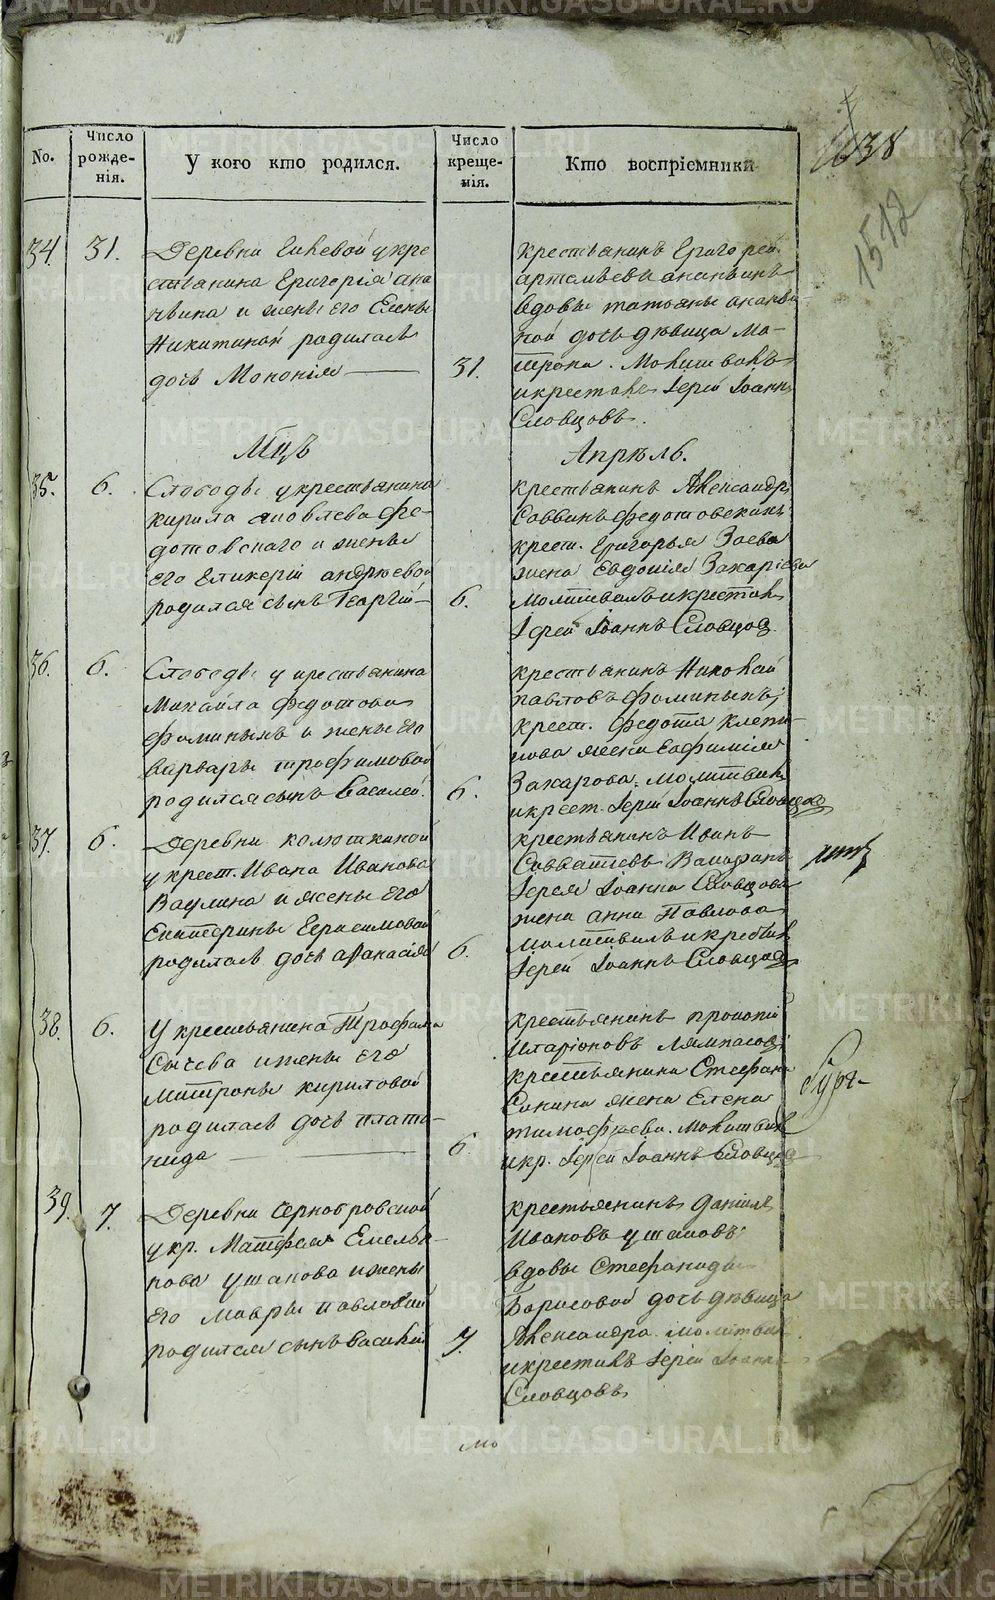 638
1512
No.
Число рожде-нія.
У кого кто родился.
Число креще-нія.
Кто воспріемники
34. 31.
Деревни у кре
стьянина Григорія ана
ньина и жены его Елены
Никитиной родилась
дочь
31.
крестьянинъ Григорей
артемьевъ ананьинъ
вдовы татьяны ананьи-
ной дочь дѣвица Ма-
трона. Молитвилъ
и крестилъ Іерей Іоаннъ
Словцовъ.
Мцъ Апрѣль.
35. 6.
Слободы у крестьянина
кирила яковлева фе-
дотовскаго и жены
его Гликеріи андреевой
родился сынъ Георгій
6.
крестьянинъ Александръ
Саввинъ федотовскихъ
крест. Григорья Зоева
жена Евдокія Захаріева
Молитвилъ и крестилъ
Іерей Іоаннъ Словцов
36. 6.
Слободы у крестьянина
Михаила федотова
фоминыхъ и жены его
варвары трофимовой
родился сынъ Василей.
6.
крестьянинъ Николай
павловъ фоминыхъ,
крест. федота клепи-
нова жена Евфимія
Захарова. Молитвилъ
и крест. Іерей Іоаннъ Словцов
37. 6.
Деревни колюткиной
у крест. Ивана Иванова
Ваулина и жены его
Екатерины Герасимовой
родилась дочь афанасія
6.
крестьянинъ Иванъ
Савватеевъ
Іерея Іоанна Словцова
жена анна Павлова
молитвилъ и крестил
Іерей Іоаннъ Словцов
38. 6.
У крестьянина Трофима
Сычева и жены его
Матроны кириловой
родилась дочь плато-
нида
6.
крестьянинъ прокопій
Иларіоновъ
крестьянина Стефана
Санина жена Елена
тимофеева. Молитвил
и кр. Іерей Іоаннъ Словцов
39. 7.
Деревни Чернобровской
у кр. Матфея Емелья-
нова ушакова и жены
его мавры павловой
родился сынъ Василій
7.
крестьянинъ Даніилъ
Ивановъ ушаковъ
вдовы Стефаниды
Борисовой дочь дѣвица
Александра. Молитвил
и крестилъ Іерей Іоаннъ
Словцовъ
мо
METRIKI.GASO-URAL.RU